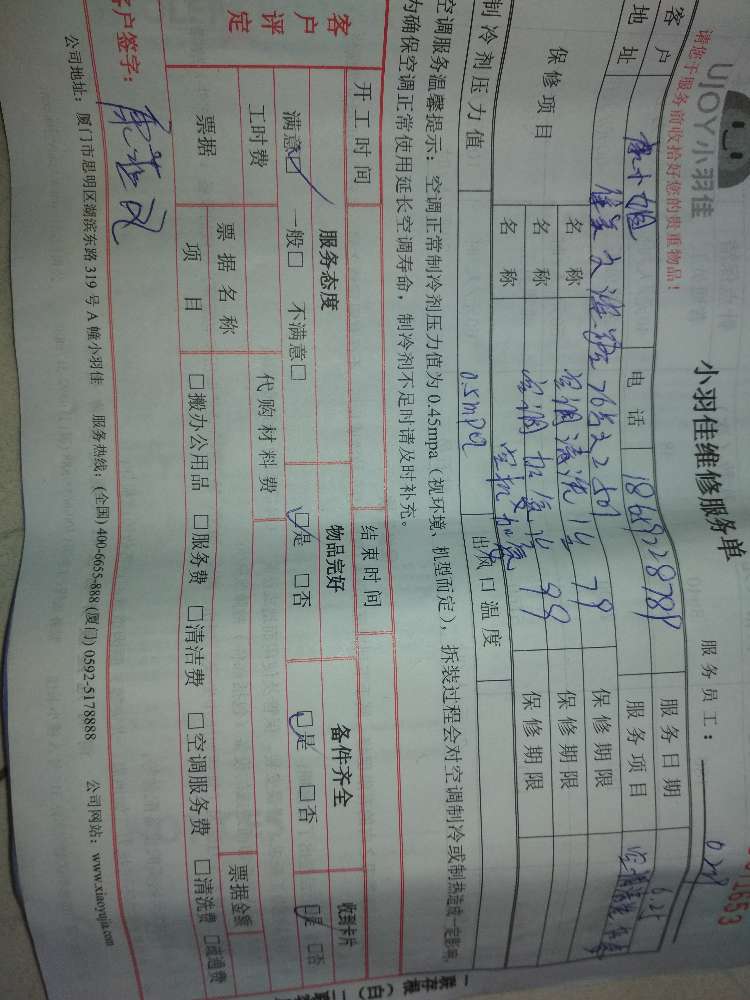 UJOY小羽佳
请您于服务前收拾好您的贵重物品！
小羽佳维修服务单
服务员工：
1653
客户 电话 服务日期 6.25
地址 服务项目
保修项目 名称 空调清洗1台 79 保修期限
名称 空调加氨 99 保修期限
名称 保修期限
制冷剂压力值 0.5mpa 出风口温度
空调服务温馨提示：空调正常制冷剂压力值为 0.45mpa（视环境、机型而定），拆装过程会对空调制冷或制热造成一定影响，
为确保空调正常使用延长空调寿命，制冷剂不足时请及时补充。
开工时间 结束时间
客户评定 服务态度 物品完好 备件齐全 收到卡片
满意☑ 一般□ 不满意□ ☑是 □否 ☑是 □否 ☑是 □否
工时费 代购材料费
票据 票据名称 票据金额
项目 □搬办公用品 □服务费 □清洁费 □空调服务费 □清洗费 □疏通费
客户签字：
公司地址：厦门市思明区湖滨东路 319 号 A 幢小羽佳 服务热线：(全国) 400-6655-888 (厦门) 0592-5178888 公司网站：www.xiaoyujia.com
一联存根（白）二联